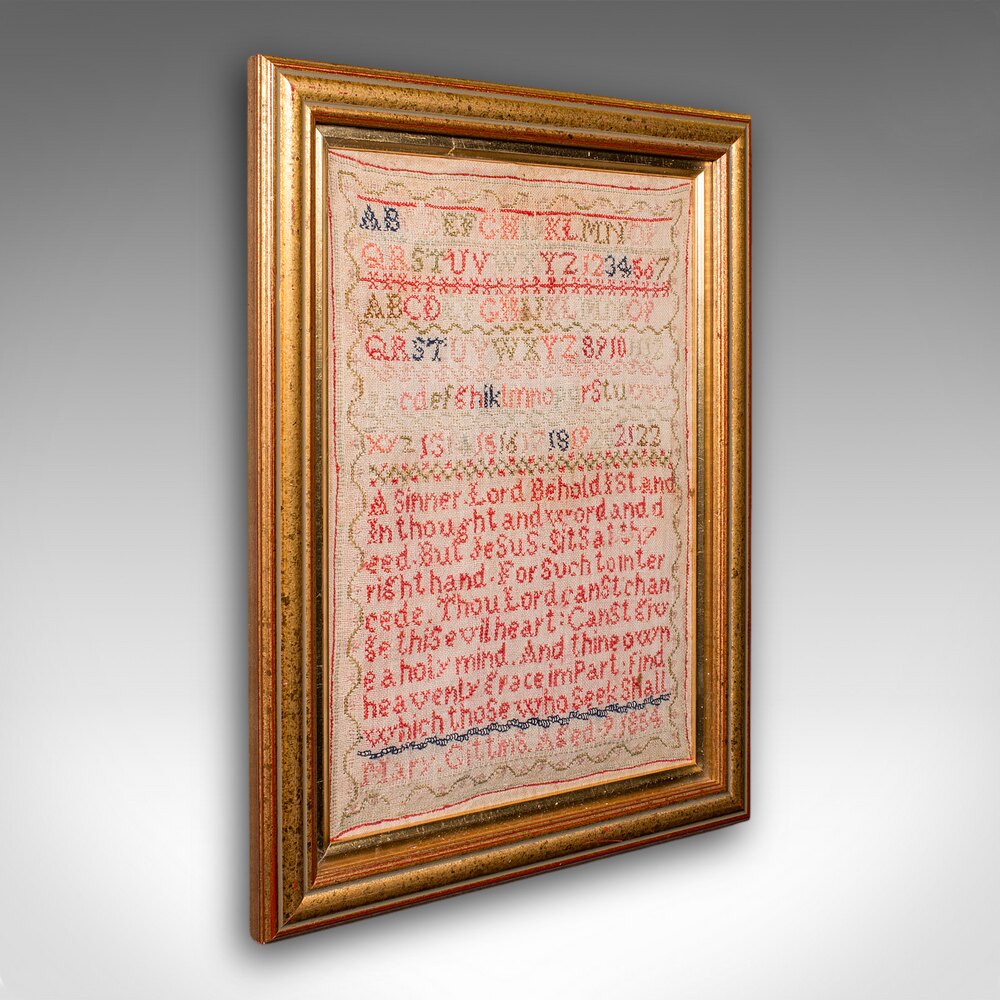 AB EFGH KLMNOP
QRSTUVWXYZ1234567
ABCD EFGHIJKLMNOP
QRSTUVWXYZ8910
cdefghiklmnopqrstuvw
xyz13141516171819 2122
A Sinner Lord Behold I Stand
In thought and word and d
eed. But JeSuS. Sit S at thy
right hand. For Such to inter
cede. Thou Lord canSt chan
ge thiS evil heart: CanSt giv
e a holy mind. And thine own
heavenly Grace imPart: Find
which thoSe who Seek Shall
Mary. Gittins. Aged 9. 1884